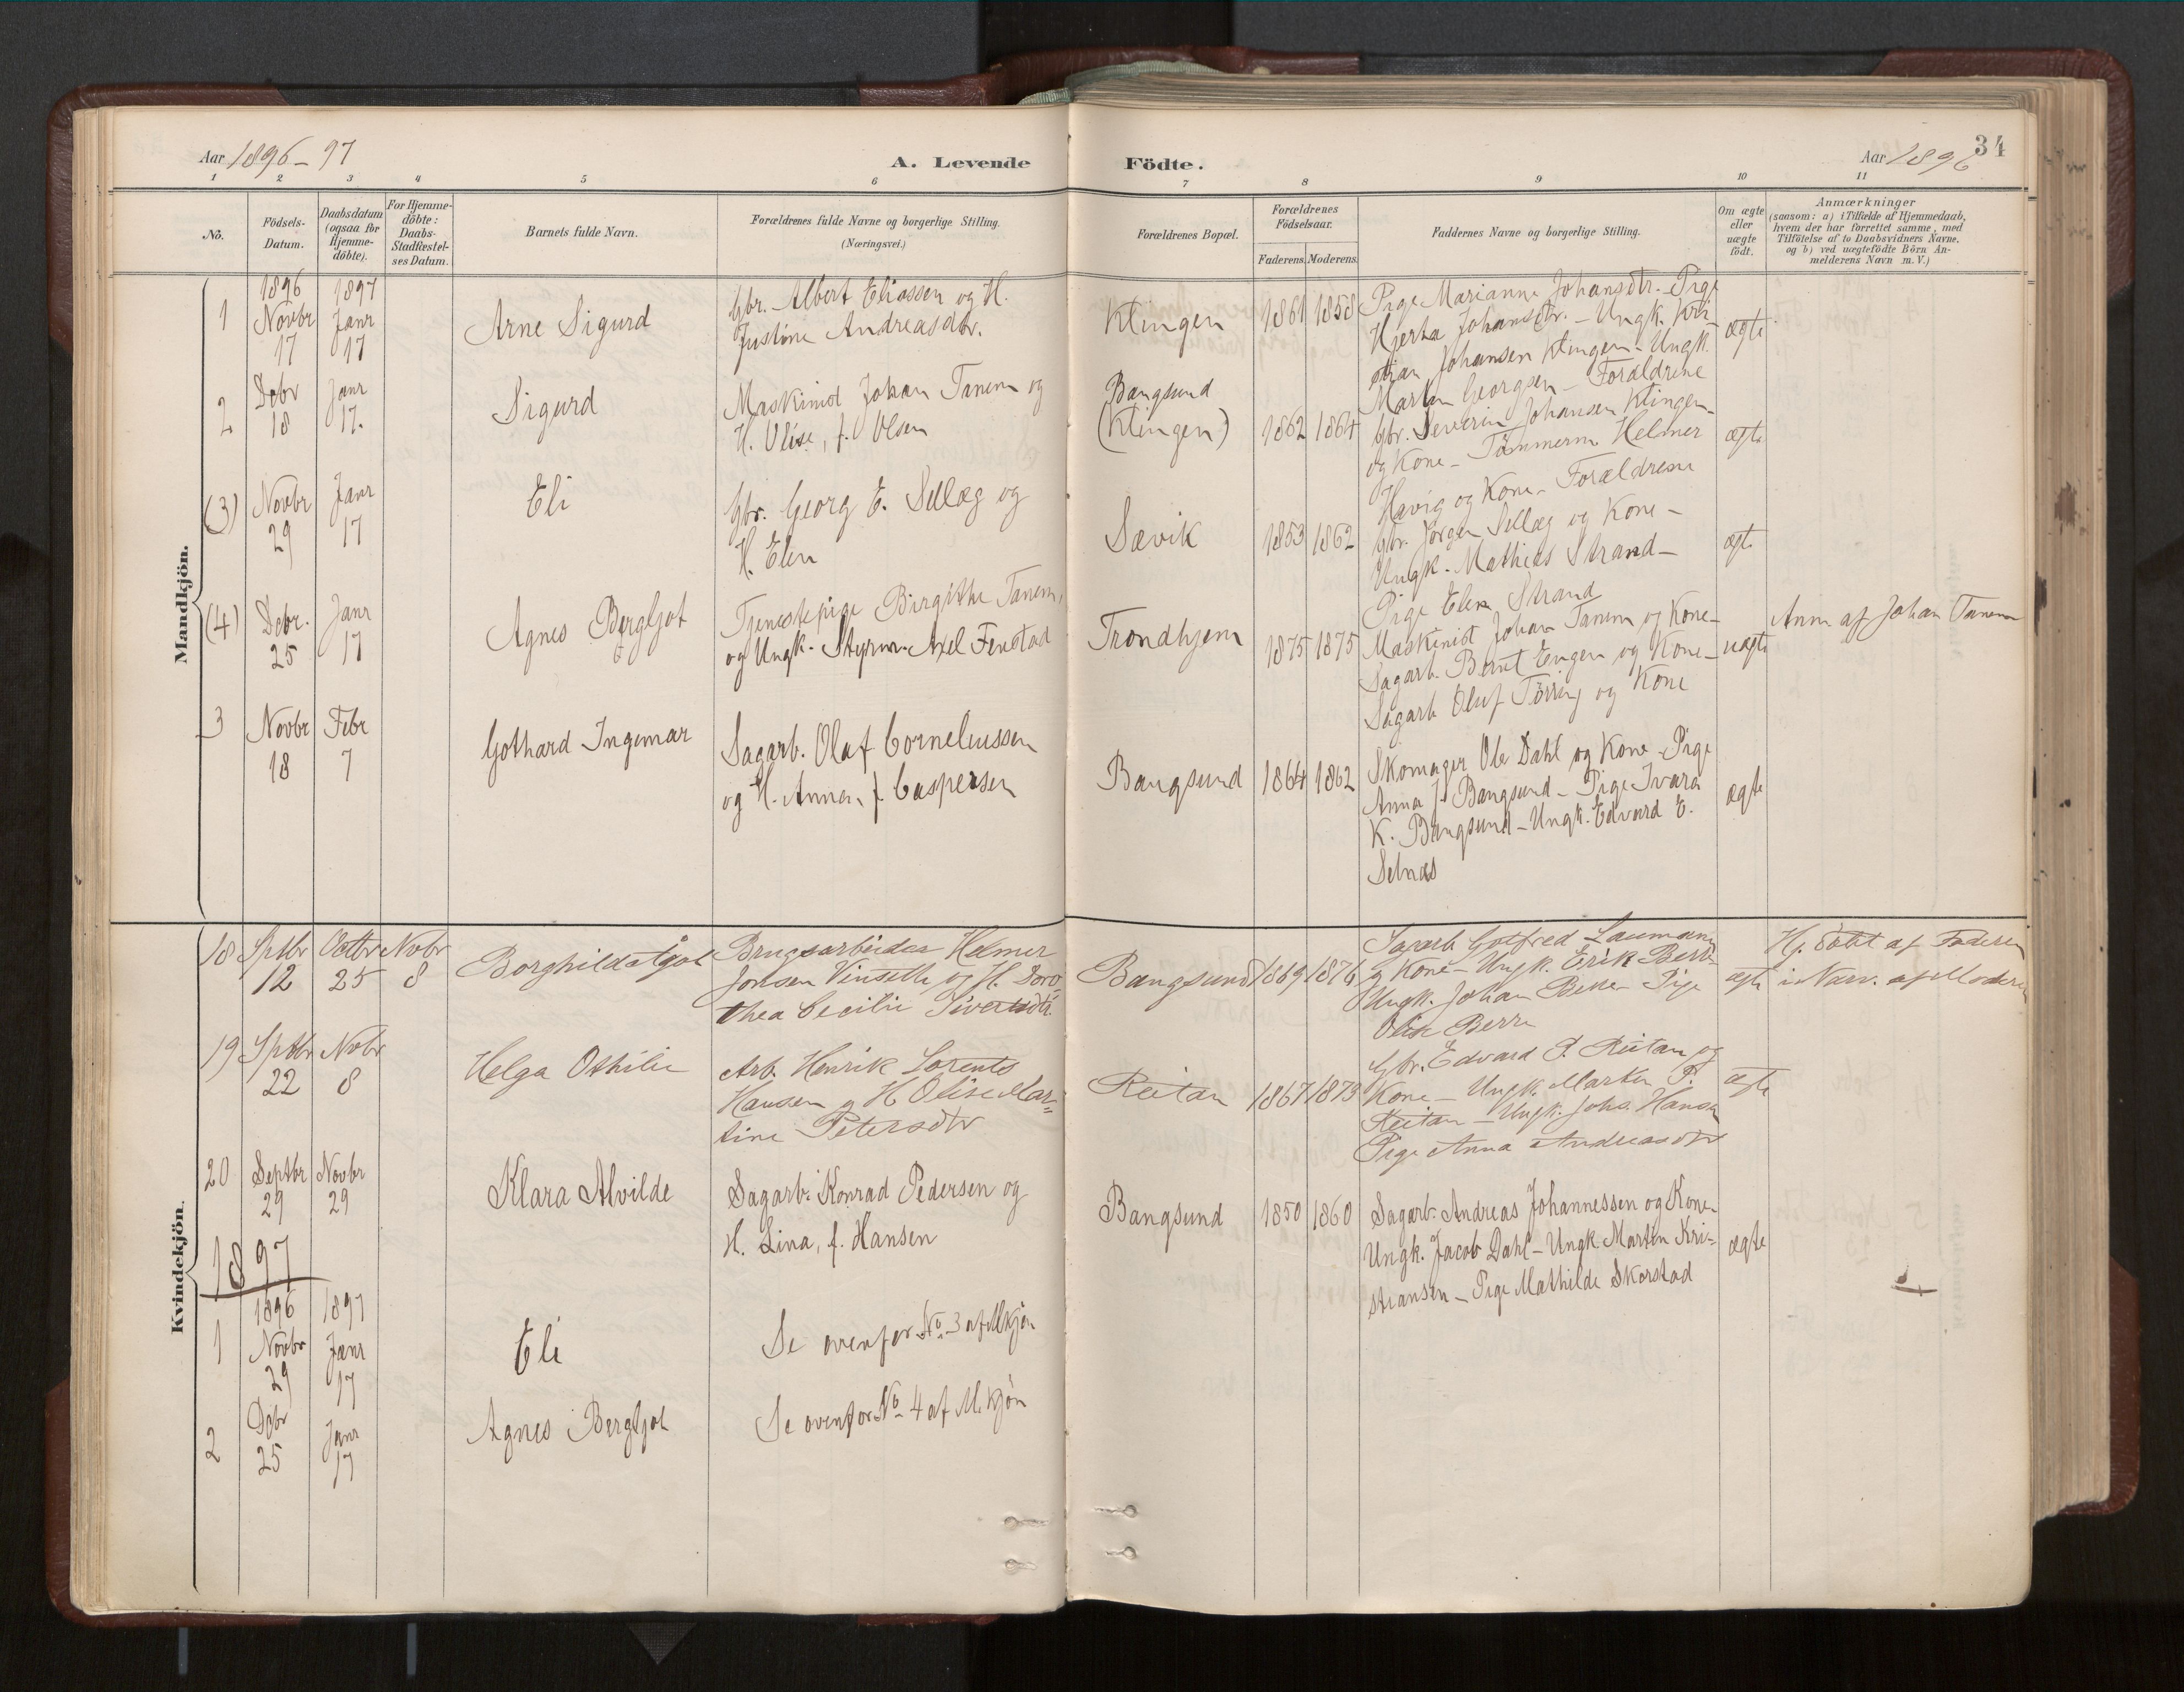 Aar 1896-97
A. Levende
Födte.
Aar 1896
34
1 2 3 4 5 6 7 8 9 10 11
No.
Födsels-
Datum.
Daabsdatum
(ogsaa for
Hjemme-
döbte).
For Hjemme-
döbte:
Daabs-
Stadfæstel-
ses Datum.
Barnets fulde Navn.
Forældrenes fulde Navne og borgerlige Stilling.
(Næringsvei.)
Forældrenes Bopæl.
Forældrenes
Födselsaar.
Faderens. Moderens.
Faddernes Navne og borgerlige Stilling.
Om ægte
eller
uægte
födt.
Anmærkninger
(saasom: a) i Tilfælde af Hjemmedaab,
hvem der har forrettet samme, med
Tilföielse af to Daabsvidners Navne,
og b) ved uægtefödte Börn An-
melderens Navn m. V.)
Mandkjön.
1
1896
Novbr
17
1897
Janr
17
Arne Sigurd
Gbr. Albert Eliassen og H.
Justine Andreasdtr.
Klingen
1861
1858
Pige Marianne Johansdtr. - Pige
Hjerta Johansdtr. - Ungk. Kri-
stian Johansen Klingen - Ungk.
Martin Georgsen - Forældrene
ægte
2
Debr
18
Janr
17.
Sigurd
Maskinist Johan Tanem og
H. Olise, f. Olsen
Bangsund
(Klingen)
1862
1864
Gbr. Severin Johansen Klingen
og Kone - Tömmerm. Helmer
Havig og Kone - Forældrene
ægte
(3)
Novbr
29
Janr
17
Eli
Gbr. Georg E. Sellæg og
H. Elen
Sævik
1853
1862
Gbr. Jörgen Sellæg og Kone -
Ungk. Mathias Strand -
Pige Elen Strand
ægte
(4)
Debr.
25
Janr
17
Agnes Bergljot
Tjenestepige Birgitte Tanem,
og Ungk. Styrm. Axel Fenstad
Trondhjem
1875
1875
Maskinist Johan Tanem og Kone -
Sagarb. Bernt Engen og Kone -
Sagarb Oluf Törring og Kone
uægte
Anm af Johan Tanem
3
Novbr
18
Febr
7
Gothard Ingemar
Sagarb. Olaf Corneliussen
og H. Anna, f. Caspersen
Bangsund
1864
1862
Skomager Ole Dahl og Kone - Pige
Anna J. Bangsund - Pige Ivara
K. Bangsund - Ungk. Edvard E.
Selnæs
ægte
Kvindekjön.
18
Sptbr
12
Octbr
25
Novbr
8
Borghild
Brugsarbeider Helmer
Jonsen og H. Doro-
thea Cecilie Sivertsdtr.
Bangsund
1869
1876
Sagarb Gotfred Laumann
og Kone - Ungk. Erik Berre
Ungk. Johan Pige
Olise Berre
ægte
Hj. döbt af Faderen
i Nærv. af Moderen
19
Sptbr
22
Novbr
8
Helga Othilie
Arb. Henrik Lorents
Hansen og H Olise Mar-
tine Petersdtr
Reitan
1867
1873
Gbr. Edvard P. Reitan og
Kone - Ungk. Martin P.
Reitan - Ungk. Johs. Hansen
Pige Anna Andreasdtr
ægte
20
Septbr
29
Novbr
29
Klara Alvilde
Sagarb. Konrad Pedersen og
H. Lina, f. Hansen
Bangsund
1850
1860
Sagarb. Andreas Johannessen og Kone.
Ungk. Jacob Dahl - Ungk. Martin Kri-
stiansen - Pige Mathilde Skorstad
ægte
1897
1
1896
Novbr
29
1897
Janr
17
Eli
Se ovenfor No 3 af Mkjön
2
Debr
25
Janr
17
Agnes Bergljot
Se ovenfor No 4 af M. kjön